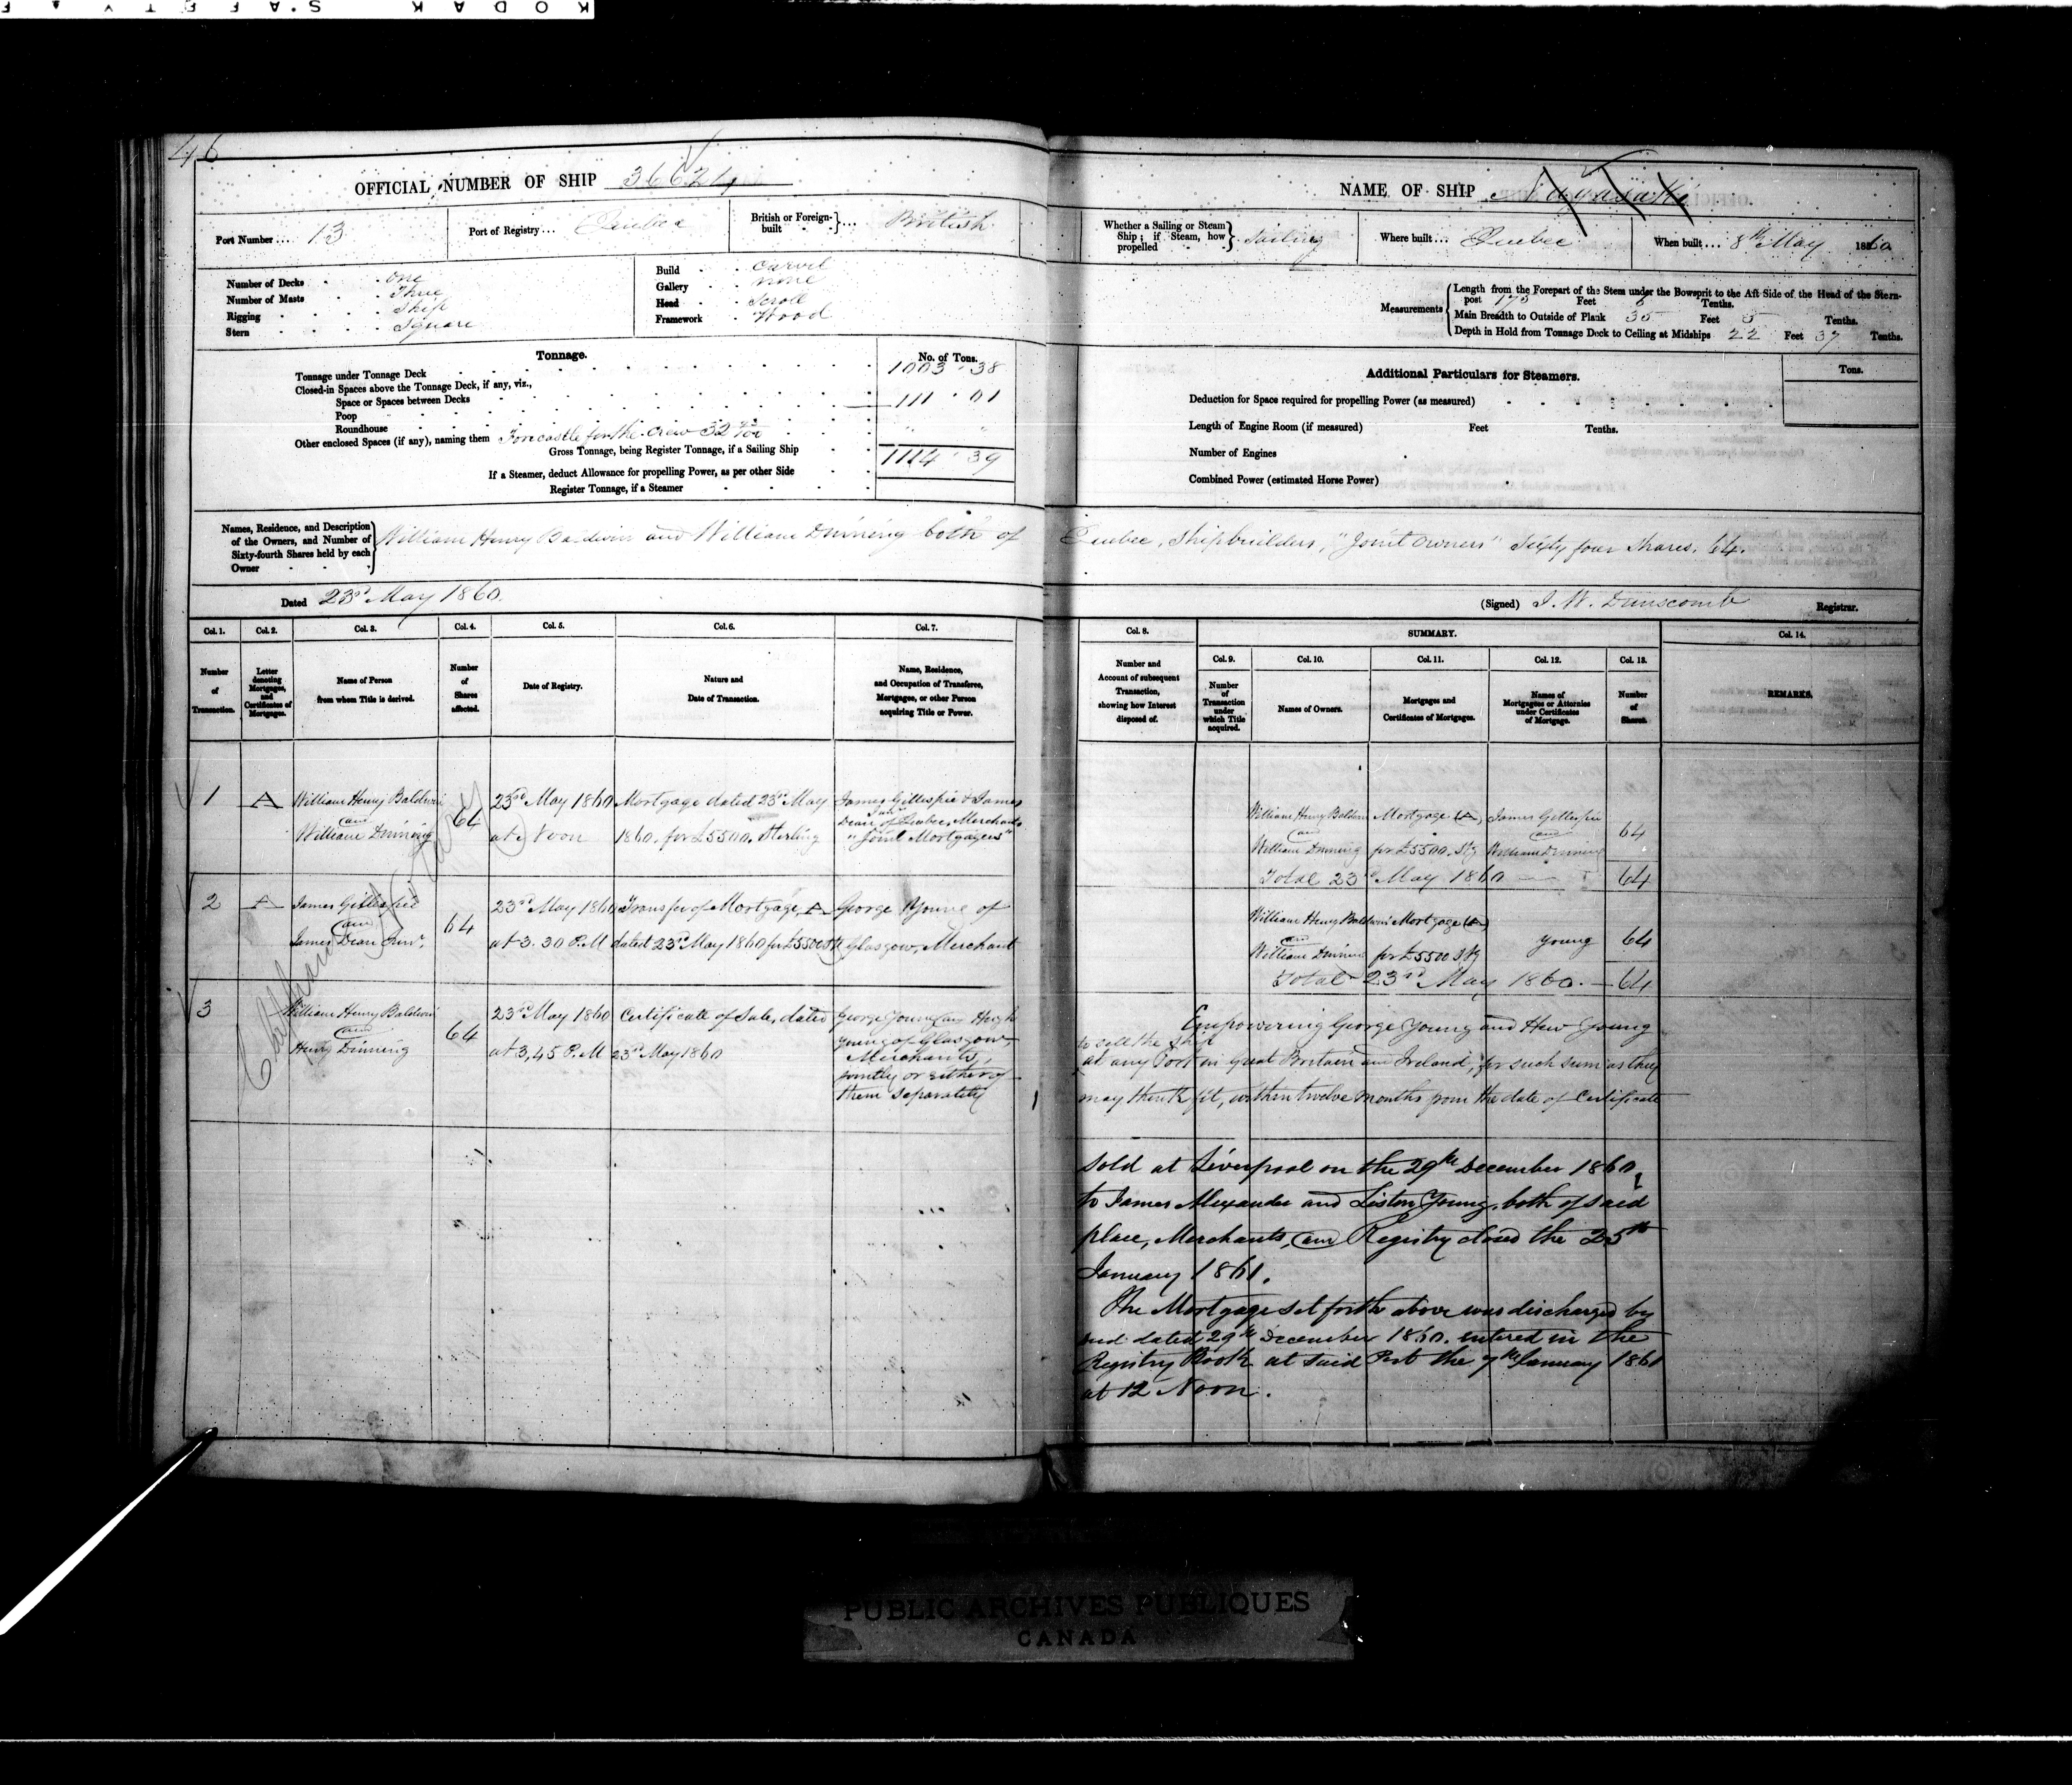 KODAK SAFETY
46
OFFICIAL NUMBER OF SHIP 36621
Port Number ... 13
Port of Registry ... Quebec
British or Foreign-built ... British
Number of Decks One
Number of Masts Three
Rigging Ship
Stern Square
Build Carvel
Gallery none
Head Scroll
Framework Wood
Tonnage.
No. of Tons.
Tonnage under Tonnage Deck 1003 . 38
Closed-in Spaces above the Tonnage Deck, if any, viz.,
Space or Spaces between Decks 111 . 01
Poop
Roundhouse
Other enclosed Spaces (if any), naming them Forecastle for the crew 32
Gross Tonnage, being Register Tonnage, if a Sailing Ship 1114 . 39
If a Steamer, deduct Allowance for propelling Power, as per other Side
Register Tonnage, if a Steamer
NAME OF SHIP
Whether a Sailing or Steam Ship; if Steam, how propelled Sailing
Where built ... Quebec
When built ... 8th May 1860
Measurements
Length from the Forepart of the Stem under the Bowsprit to the Aft Side of the Head of the Stern-
post 175 Feet 6 Tenths.
Main Breadth to Outside of Plank 35 Feet 5 Tenths.
Depth in Hold from Tonnage Deck to Ceiling at Midships 22 Feet 37 Tenths.
Additional Particulars for Steamers.
Tons.
Deduction for Space required for propelling Power (as measured)
Length of Engine Room (if measured) Feet Tenths.
Number of Engines
Combined Power (estimated Horse Power)
Names, Residence, and Description
of the Owners, and Number of
Sixty-fourth Shares held by each
Owner
William Henry Baldwin and William Dinning both of Quebec, Shipbuilders, "Joint Owners" Sixty four Shares, 64.
Dated 23rd May 1860.
(Signed) J. W. Dunscomb Registrar.
Col. 1.
Number
of
Transaction.
Col. 2.
Letter
denoting
Mortgages,
and
Certificates of
Mortgages.
Col. 3.
Name of Person
from whom Title is derived.
Col. 4.
Number
of
Shares
affected.
Col. 5.
Date of Registry.
Col. 6.
Nature and
Date of Transaction.
Col. 7.
Name, Residence,
and Occupation of Transferee,
Mortgagee, or other Person
acquiring Title or Power.
Col. 8.
Number and
Account of subsequent
Transaction,
showing how Interest
disposed of.
SUMMARY.
Col. 9.
Number
of
Transaction
under
which Title
acquired.
Col. 10.
Names of Owners.
Col. 11.
Mortgages and
Certificates of Mortgages.
Col. 12.
Names of
Mortgagees or Attornies
under Certificates
of Mortgage.
Col. 13.
Number
of
Shares.
Col. 14.
REMARKS.
1
A
William Henry Baldwin
and
William Dinning
64
23rd May 1860
at Noon
Mortgage dated 23rd May
1860, for £5500, Sterling
James Gillespie & James
Dean Junr of Quebec, Merchants
"Joint Mortgagees"
William Henry Baldwin
and
William Dinning
Mortgage (A)
for £5500 Stg
James Gillespie
and
William Dinning
64
Total 23rd May 1860
64
2
A
James Gillespie
and
James Dean Junr.
64
23rd May 1860
at 3.30 P.M
Transfer of Mortgage, A
dated 23rd May 1860 for £5500 Stg
George Young of
Glasgow, Merchant
William Henry Baldwin
and
William Dinning
Mortgage (A)
for £5500 Stg
Young
64
Total 23rd May 1860.
64
3
William Henry Baldwin
and
Henry Dinning
64
23rd May 1860
at 3,45 P.M
Certificate of Sale, dated
23rd May 1860
George Young and Hugh
Young of Glasgow
Merchants,
jointly or either of
them separately
Empowering George Young and Hew Young
to sell the ship
at any Port in Great Britain and Ireland, for such sum as they
may think fit, within twelve months from the date of Certificate
Sold at Liverpool on the 29th December 1860,
to James Alexander and Liston Young, both of said
place, Merchants, and Registry closed the 25th
January 1861.
The Mortgage set forth above was discharged by
dated 29th December 1860. entered in the
Registry Book at said Port the 7th January 1861
at 12 Noon.
PUBLIC ARCHIVES PUBLIQUES
CANADA